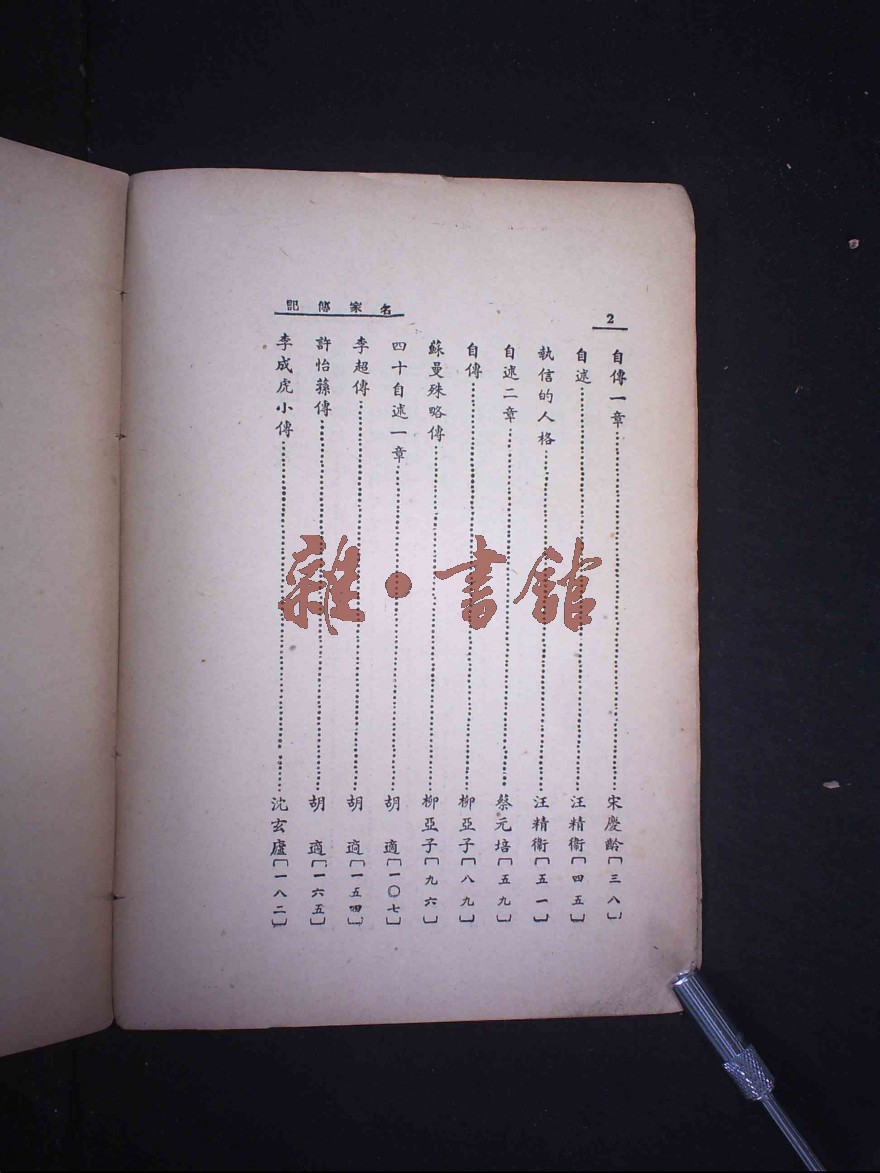 2
名家傳記
自傳一章……宋慶齡〔三八〕
自述……汪精衞〔四五〕
執信的人格……汪精衞〔五一〕
自述二章……蔡元培〔五九〕
自傳……柳亞子〔八九〕
蘇曼殊略傳……柳亞子〔九六〕
四十自述一章……胡適〔一〇七〕
李超傳……胡適〔一五四〕
許怡蓀傳……胡適〔一六五〕
李成虎小傳……沈玄廬〔一八二〕
雜·書館